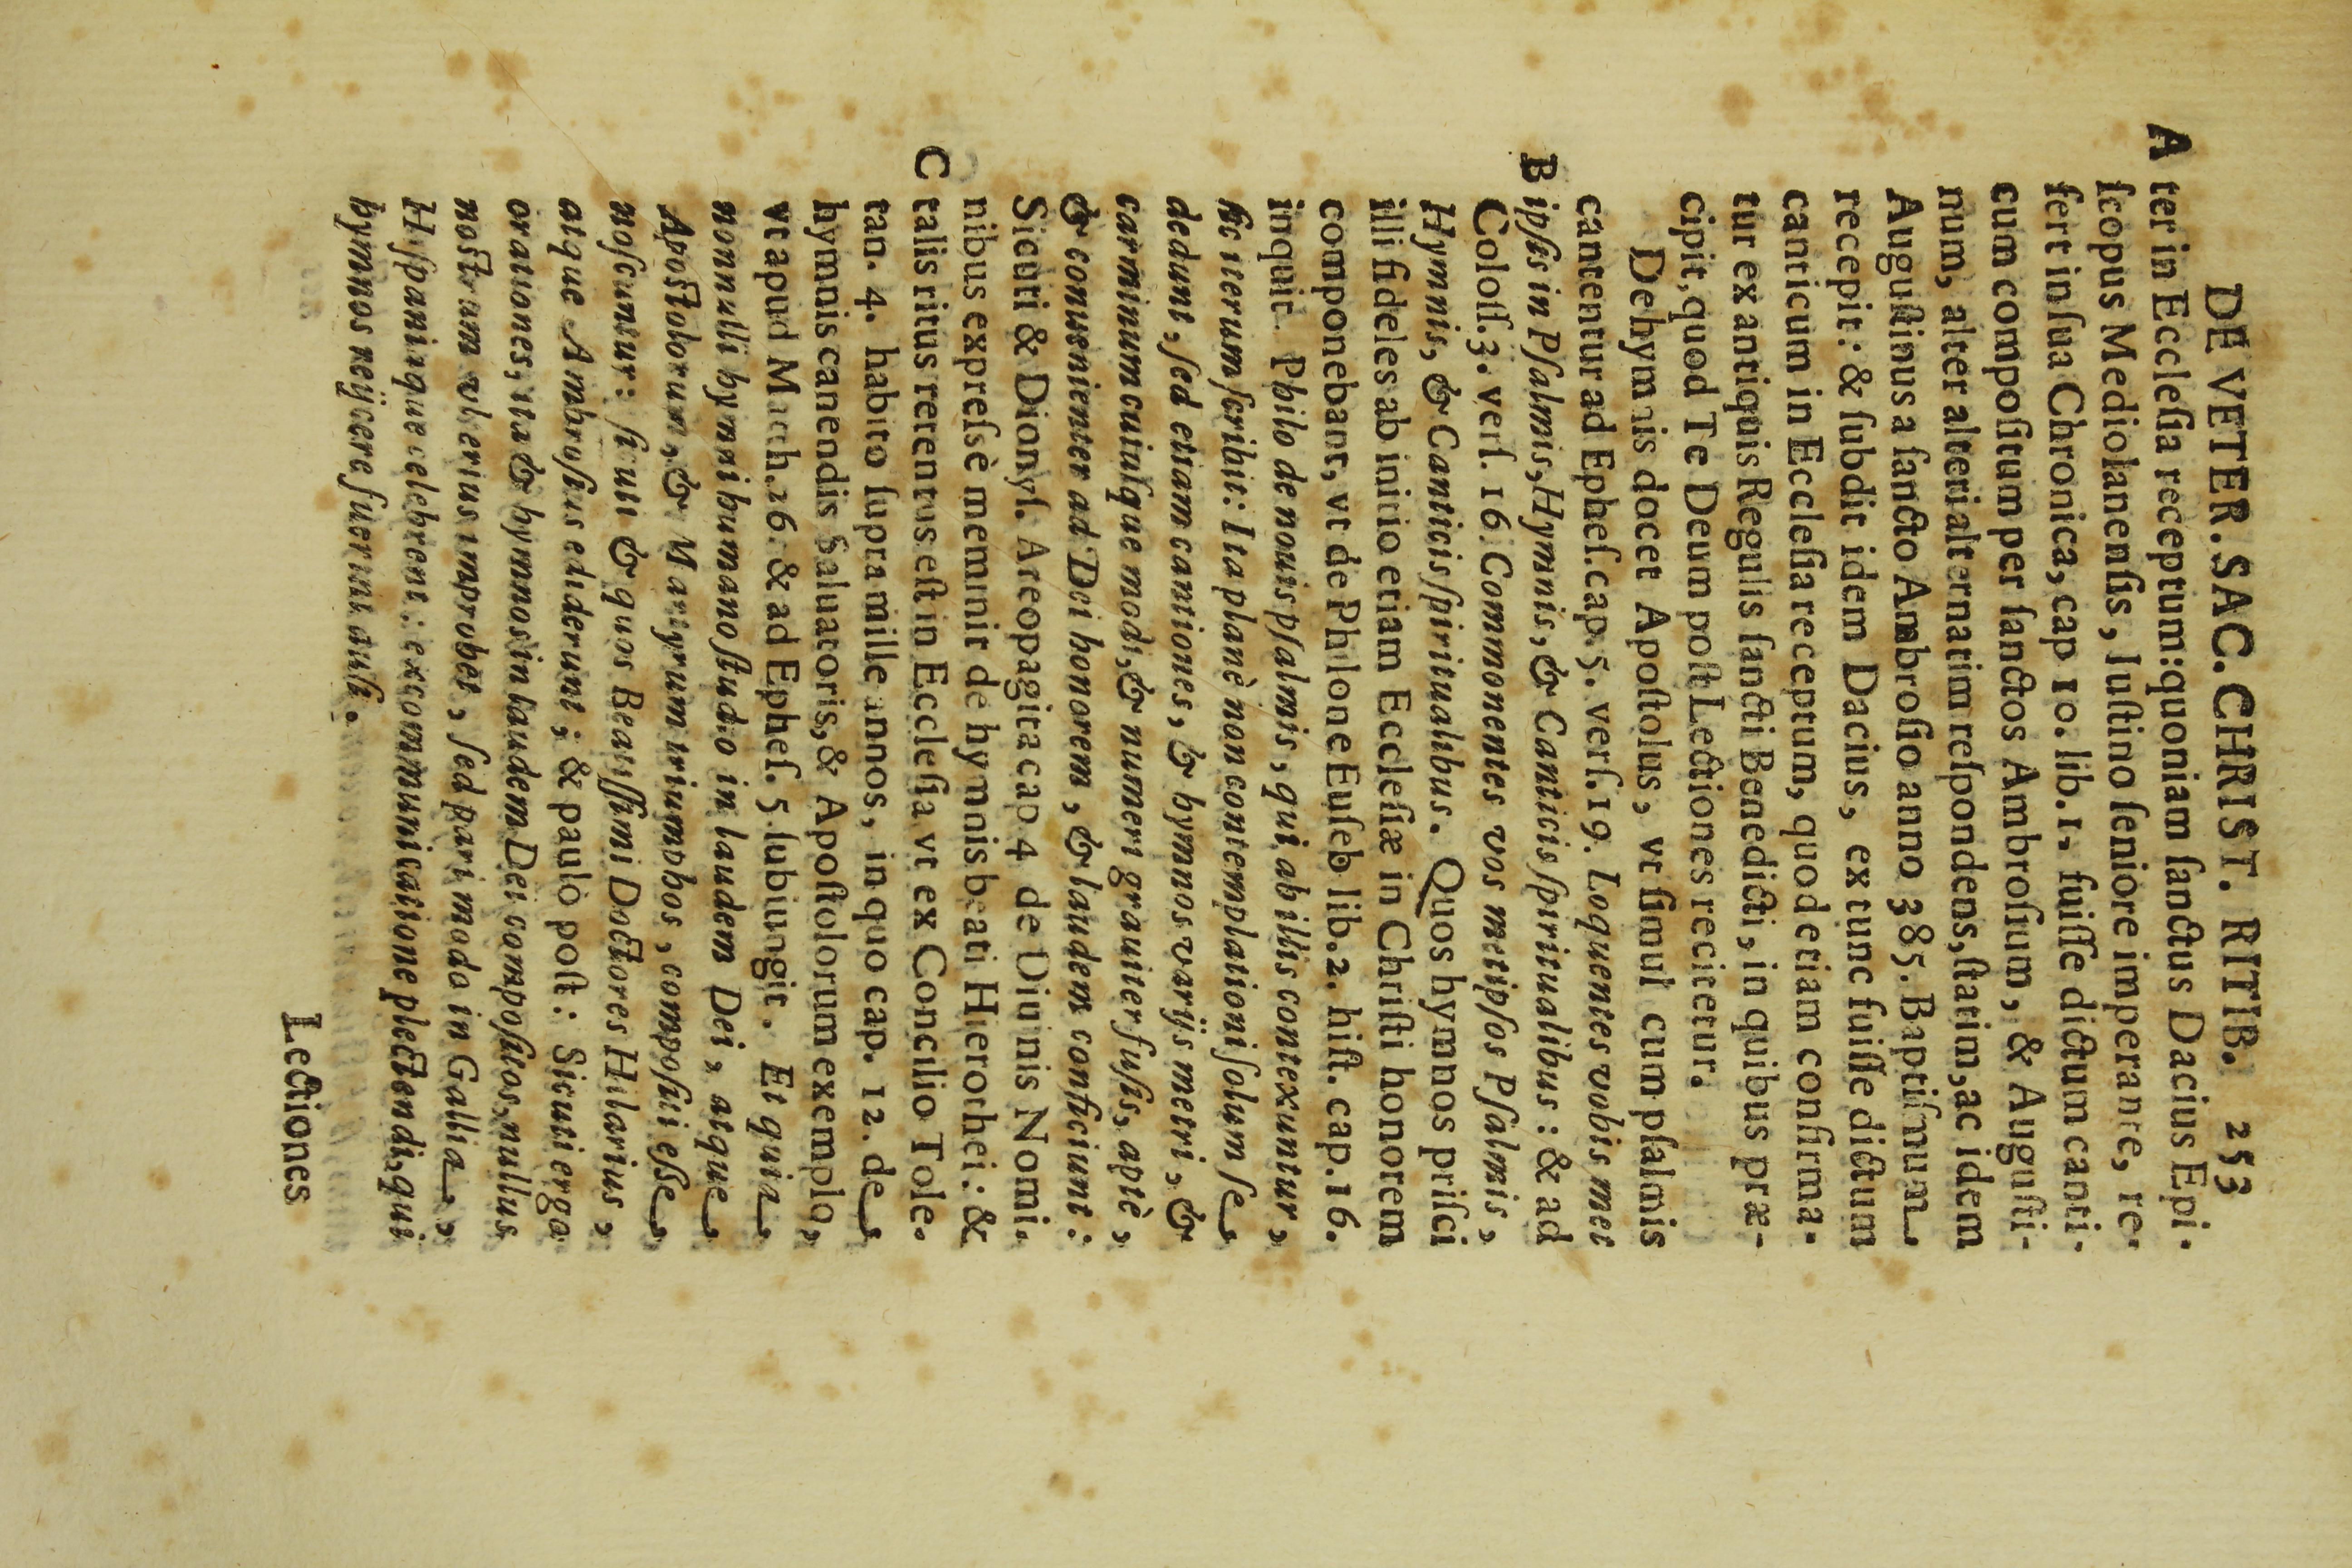 DE VETER. SAC. CHRIST. RITIB. 253
A ter in Eccleſia receptum: quoniam ſanctus Dacius Epi-
ſcopus Mediolanenſis, Iuſtino ſeniore imperante, re-
fert in ſua Chronica, cap 10. lib. 1. fuiſſe dictum canti-
cum compoſitum per ſanctos Ambroſium, & Auguſti-
num, alter alteri alternatim reſpondens, ſtatim, ac idem
Auguſtinus a ſancto Ambroſio anno 385. Baptiſmum
recepit: & ſubdit idem Dacius, ex tunc fuiſſe dictum
canticum in Eccleſia receptum, quod etiam confirma-
tur ex antiquis Regulis ſancti Benedicti, in quibus præ-
cipit, quod Te Deum poſt Lectiones recitetur.
De hymnis docet Apoſtolus, vt ſimul cum pſalmis
cantentur ad Epheſ. cap. 5. verſ. 19. Loquentes vobis met
B ipſis in Pſalmis, Hymnis, & Canticis ſpiritualibus: & ad
Coloſſ. 3. verſ. 16. Commonentes vos metipſos Pſalmis,
Hymnis, & Canticis ſpiritualibus. Quos hymnos priſci
illi fideles ab initio etiam Eccleſiæ in Chriſti honorem
componebant, vt de Philone Euſeb lib. 2. hiſt. cap. 16.
inquit. Philo de nouis pſalmis, qui ab illis contexuntur,
ſic iterum ſcribit: Ita planè non contemplationi ſolum ſe
dedunt, ſed etiam cantiones, & hymnos varijs metri, &
carminum cuiuſque modi, & numeri grauiter fuſis, aptè,
& conuenienter ad Dei honorem, & laudem conficiunt:
Sicuti & Dionyſ. Areopagita cap 4 de Diuinis Nomi-
nibus expreſsè meminit de hymnis beati Hierothei: &
C talis ritus retentus eſt in Eccleſia vt ex Concilio Tole-
tan. 4. habito ſupra mille annos, in quo cap. 12. de
hymnis canendis Saluatoris, & Apoſtolorum exemplo,
vt apud Matth. 26. & ad Epheſ. 5 ſubiungit. Et quia
nonnulli hymni humano ſtudio in laudem Dei, atque
Apoſtolorum, & Martyrum triumphos, compoſiti eſſe
noſcuntur: ſicuti & quos Beatiſſimi Doctores Hilarius,
atque Ambroſius ediderunt; & paulò poſt: Sicuti ergo
orationes, ita & hymnos in laudem Dei compoſitos, nullus
noſtrum vlterius improbet, ſed pari modo in Gallia,
Hiſpaniaque celebrent: excommunicatione plectendi, qui
hymnos reijcere fuerint auſi.
Lectiones